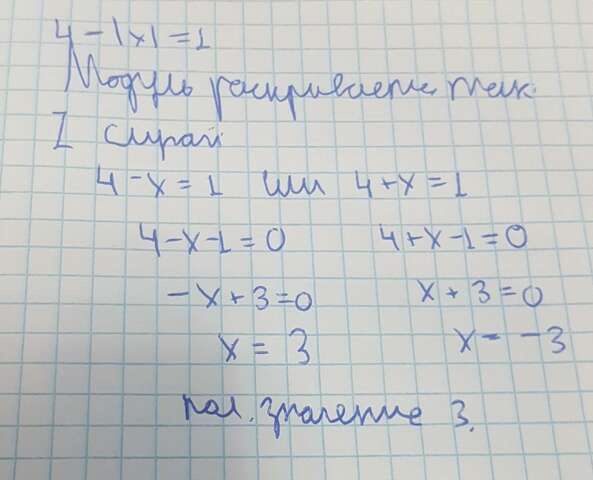 4 - |x| = 1
Модуль раскрываем так:
I случай
4 - x = 1 или 4 + x = 1
4 - x - 1 = 0 4 + x - 1 = 0
- x + 3 = 0 x + 3 = 0
x = 3 x = - 3
пол. значение 3.